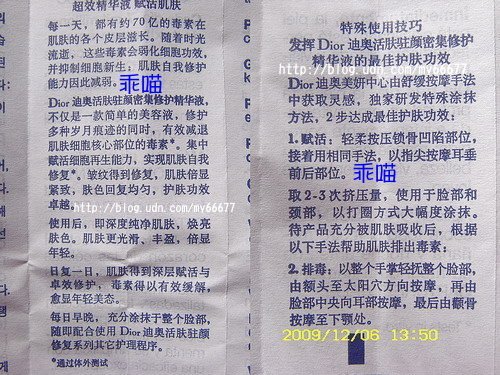 超效精华液 赋活肌肤
每一天，都有约70亿的毒素在
肌肤的各个皮层滋长。随着时光
流逝，这些毒素会弱化细胞功效，
并抑制细胞新生：肌肤自我修护
能力因此减弱。
乖喵
Dior迪奥活肤驻颜密集修护精华液，
不仅是一款简单的美容液，修护
多种岁月痕迹的同时，有效减退
肌肤细胞核心部位的毒素*。集中
赋活细胞再生能力，实现肌肤自我
修复*。皱纹得到修复，肌肤倍显
紧致，肤色回复均匀，护肤功效
卓越。
http://blog.udn.com/my66677
使用后，即深度纯净肌肤，焕亮
肤色。肌肤更光滑、丰盈，倍显
年轻。
日复一日，肌肤得到深层赋活与
卓效修护，毒素得以有效缓解，
愈显年轻美态。
每日早晚，充分涂抹于整个脸部，
随即配合使用Dior迪奥活肤驻颜
修复系列其它护理程序。
*通过体外测试
特殊使用技巧
发挥Dior迪奥活肤驻颜密集修护
精华液的最佳护肤功效
http://blog.udn.com/my66677
Dior迪奥美妍中心由舒缓按摩手法
中获取灵感，独家研发特殊涂抹
方法，2步达成最佳护肤功效。
1. 赋活：轻柔按压锁骨凹陷部位，
接着用相同手法，以指尖按摩耳垂
前后部位。
乖喵
取2-3次挤压量，使用于脸部和
颈部，以打圈方式大幅度涂抹。
待产品充分被肌肤吸收后，根据
以下手法帮助肌肤排出毒素：
2. 排毒：以整个手掌轻抚整个脸部，
由额头至太阳穴方向按摩，再由
脸部中央向耳部按摩，最后由颧骨
按摩至下颚处。
2009/12/06 13:50